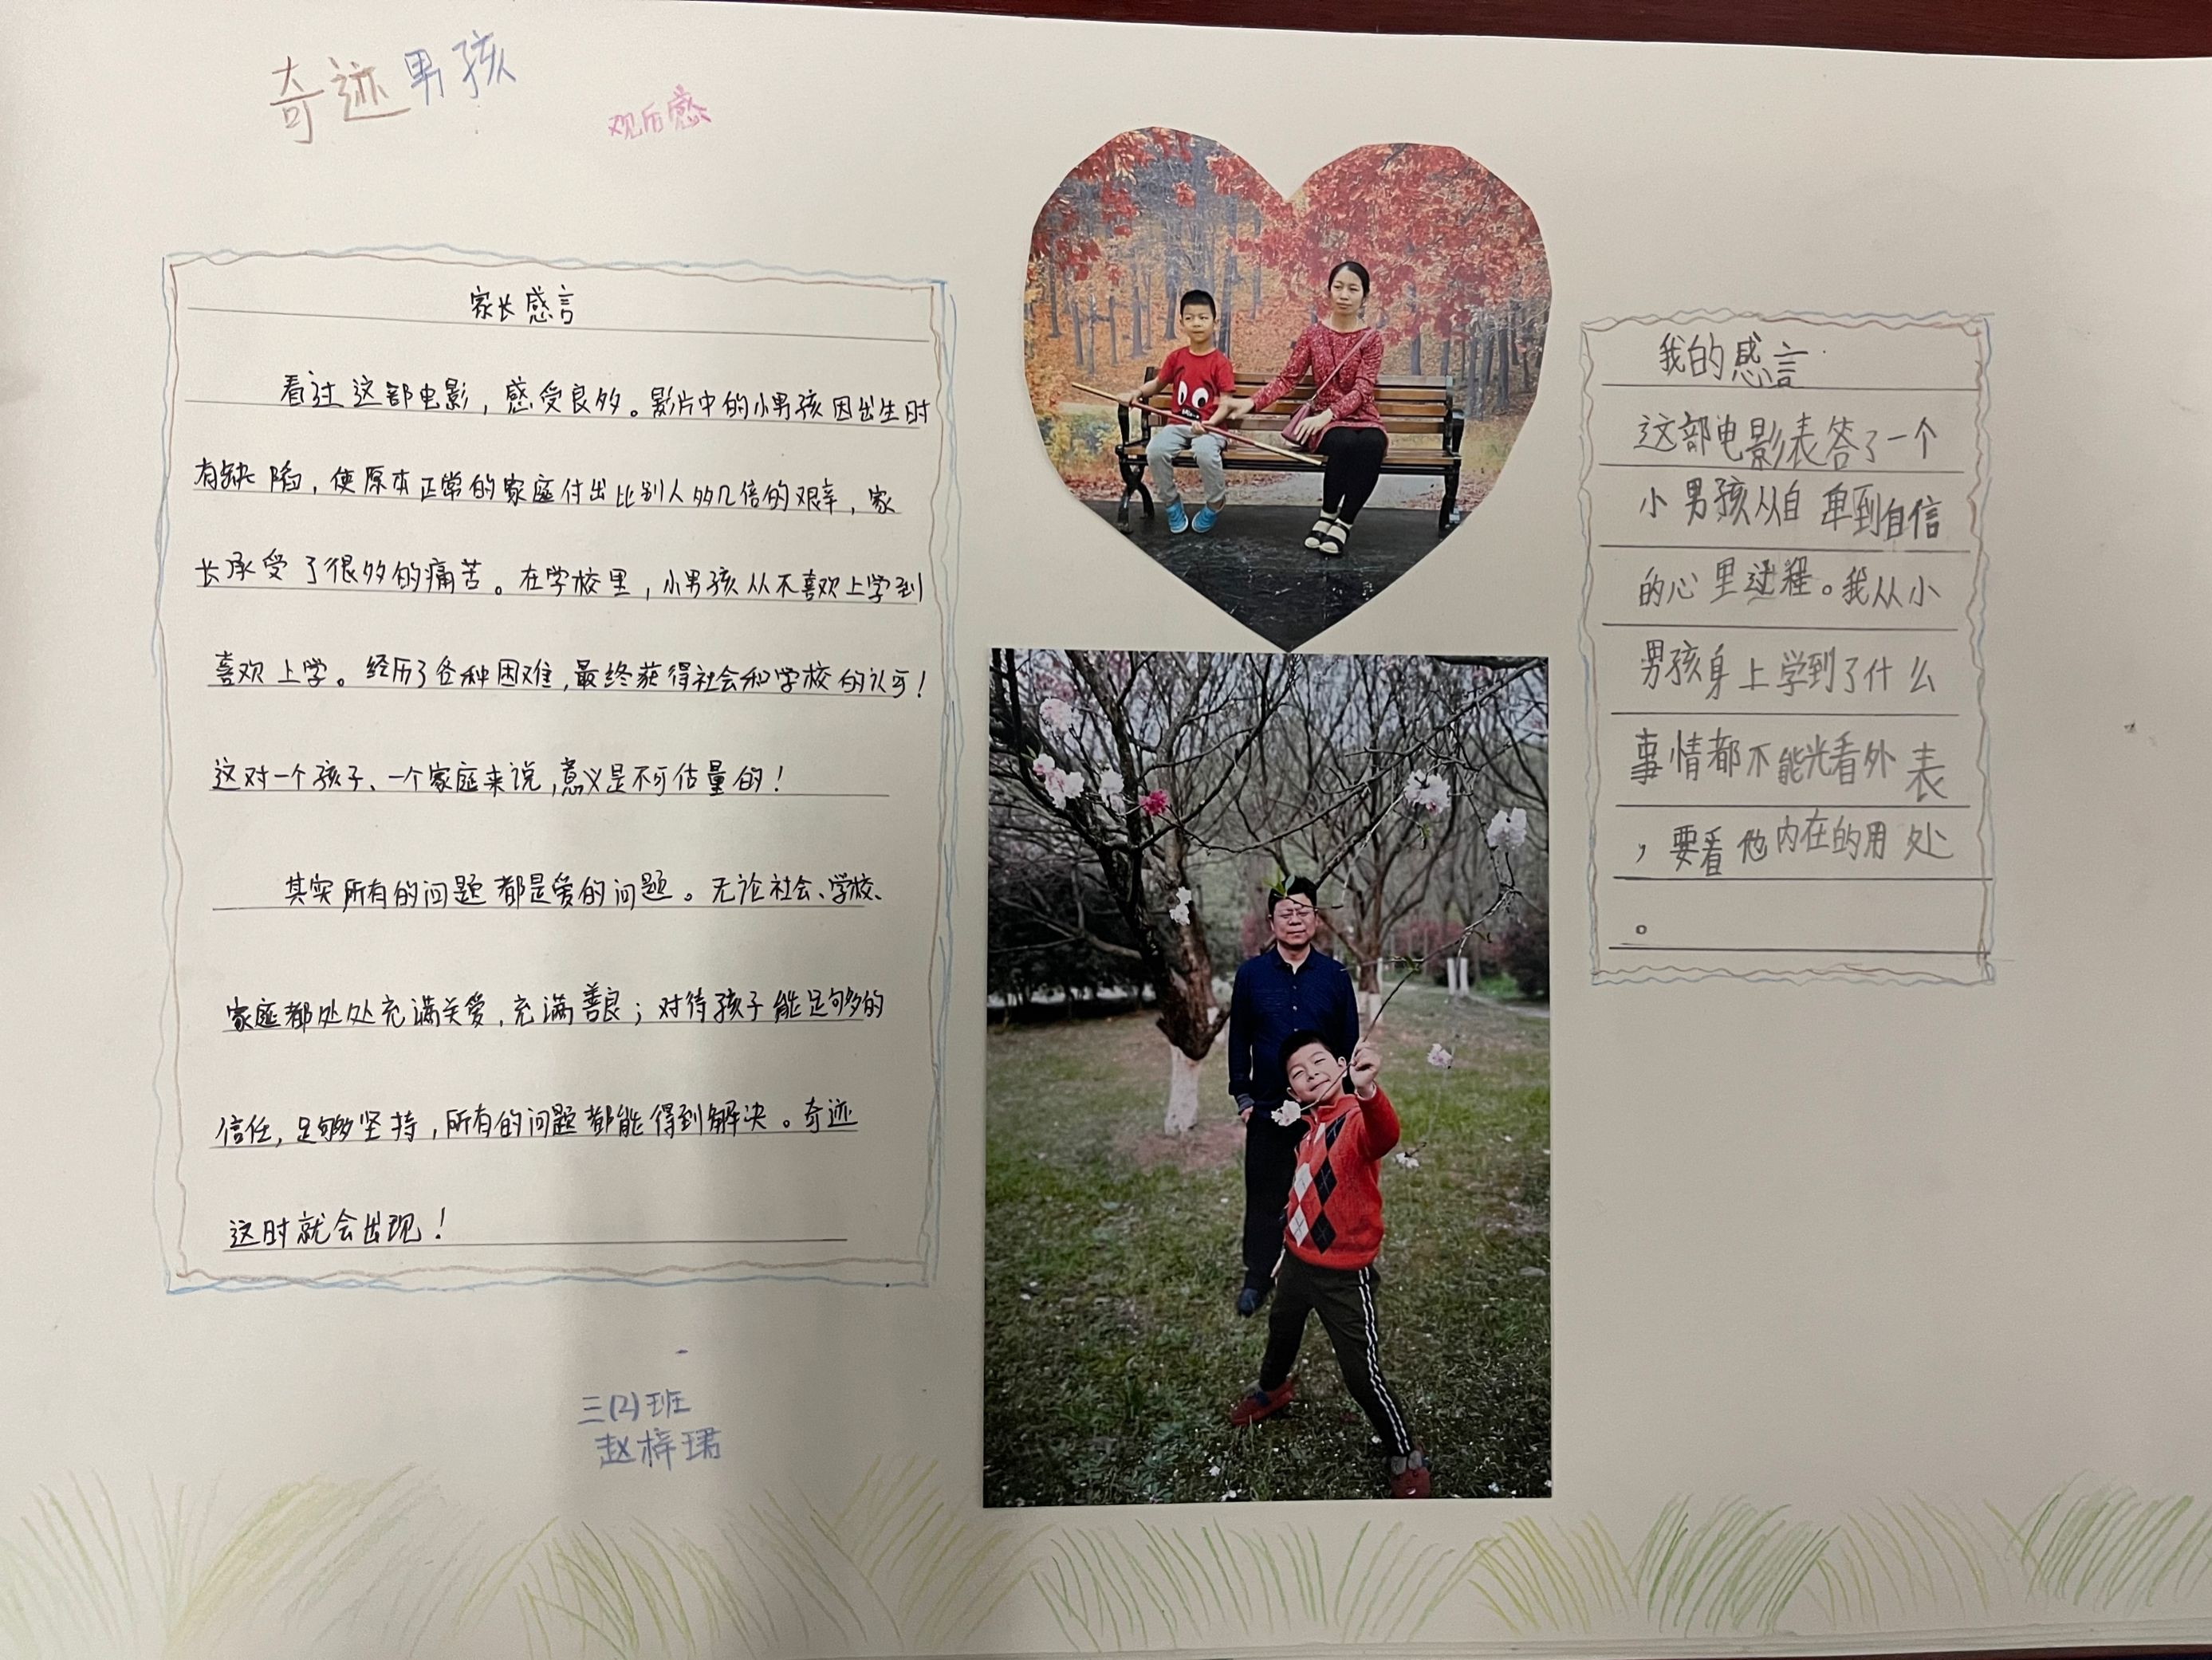 奇迹男孩
观后感
家长感言
看过这部电影，感受良多。影片中的小男孩因出生时
有缺陷，使原本正常的家庭付出比别人多几倍的艰辛，家
长承受了很多的痛苦。在学校里，小男孩从不喜欢上学到
喜欢上学。经历了各种困难，最终获得社会和学校的认可！
这对一个孩子、一个家庭来说，意义是不可估量的！
其实所有的问题都是爱的问题。无论社会、学校、
家庭都处处充满关爱，充满善良；对待孩子能足够的
信任，足够坚持，所有的问题都能得到解决。奇迹
这时就会出现！
三(2)班
赵梓珺
我的感言
这部电影表答了一个
小男孩从自卑到自信
的心里过程。我从小
男孩身上学到了什么
事情都不能光看外表
，要看他内在的用处
。